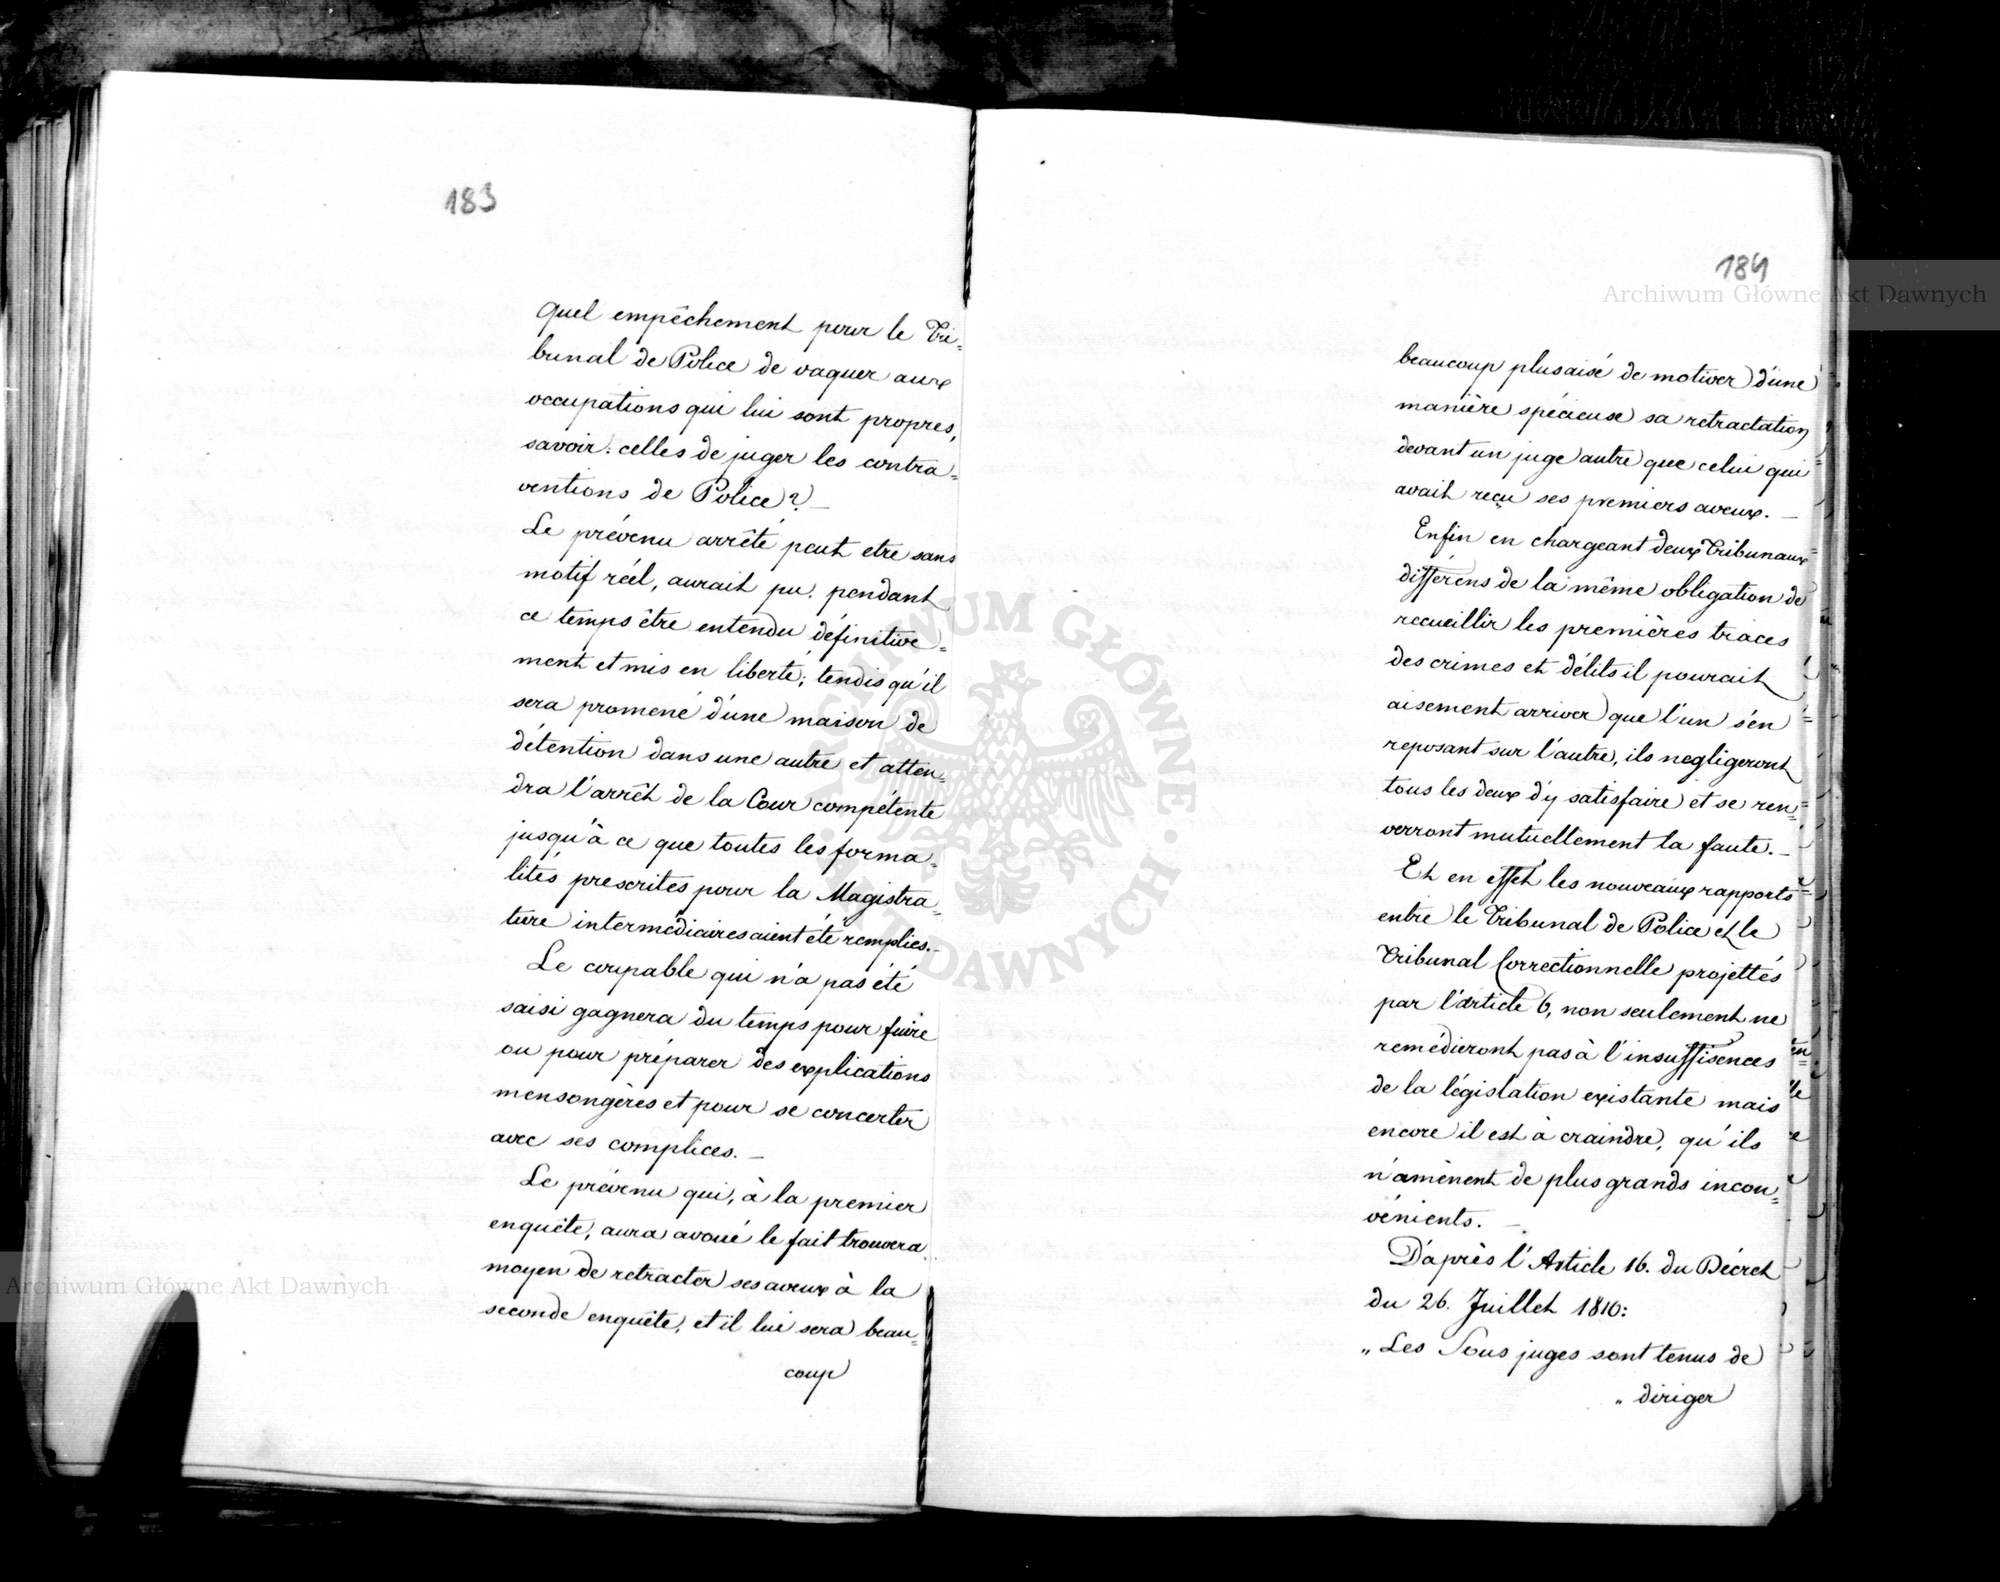 183
Quel empêchement pour le Tri=
bunal de Police de vaquer aux
occupations qui lui sont propres,
savoir: celles de juger les contra=
ventions de Police? —
Le prévenu arrêté peut etre sans
motif réel, aurait pu pendant
ce temps être entendu définitive=
ment et mis en liberté; tendis qu'il
sera promené d'une maison de
détention dans une autre et atten=
dra l'arrêt de la Cour compétente
jusqu'à ce que toutes les forma=
lités prescrites pour la Magistra=
ture intermédiaires aient été remplies. —
Le coupable qui n'a pas été
saisi gagnera du temps pour fuire
ou pour préparer des explications
mensongères et pour se concerter
avec ses complices. —
Le prévenu qui, à la premier
enquête, aura avoué le fait trouvera
moyen de retracter ses aveux à la
seconde enquête, et il lui sera beau=
coup
184
beaucoup plus aisé de motiver d'une
manière spécieuse sa retractation
devant un juge autre que celui qui
avait reçu ses premiers aveux. —
Enfin en chargeant deux Tribunaux
différens de la même obligation de
recueillir les premières traces
des crimes et délits il pourait
aisement arriver que l'un s'en
reposant sur l'autre, ils negligeront
tous les deux d'y satisfaire et se ren=
verront mutuellement la faute. —
Et en effet les nouveaux rapports
entre le Tribunal de Police et le
Tribunal Correctionnelle projettés
par l'article 6, non seulement ne
remédieront pas à l'insuffisences
de la législation existante mais
encore il est à craindre, qu'ils
n'amènent de plus grands incon=
vénients. —
D'après l'Article 16. du Décret
du 26. Juillet 1810:
„ Les Sous juges sont tenus de
„ diriger
Archiwum Główne Akt Dawnych
Archiwum Główne Akt Dawnych
ARCHIWUM GŁÓWNE AKT DAWNYCH